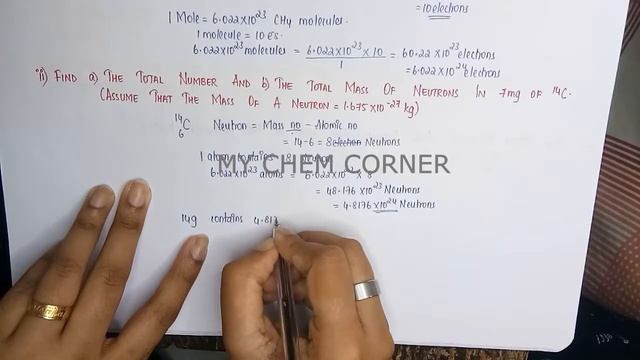 = 10 electrons
1 Mole = 6.022×10²³ CH₄ molecules.
1 molecule = 10 es.
6.022×10²³ molecules = 6.022×10²³ × 10 / 1 = 60.22 × 10²³ electrons
= 6.022×10²⁴ electrons
ii) FIND a) THE TOTAL NUMBER AND b) THE TOTAL MASS OF NEUTRONS IN 7mg OF ¹⁴C.
(ASSUME THAT THE MASS OF A NEUTRON = 1.675 × 10⁻²⁷ kg)
¹⁴₆C Neutron = Mass no - Atomic no
= 14-6 = 8 Neutrons
1 atom contains 8
MY CHEM CORNER
6.022×10²³ atoms = 8
= 48.176 × 10²³ Neutrons
= 4.8176 × 10²⁴ Neutrons
14g contains 4.817